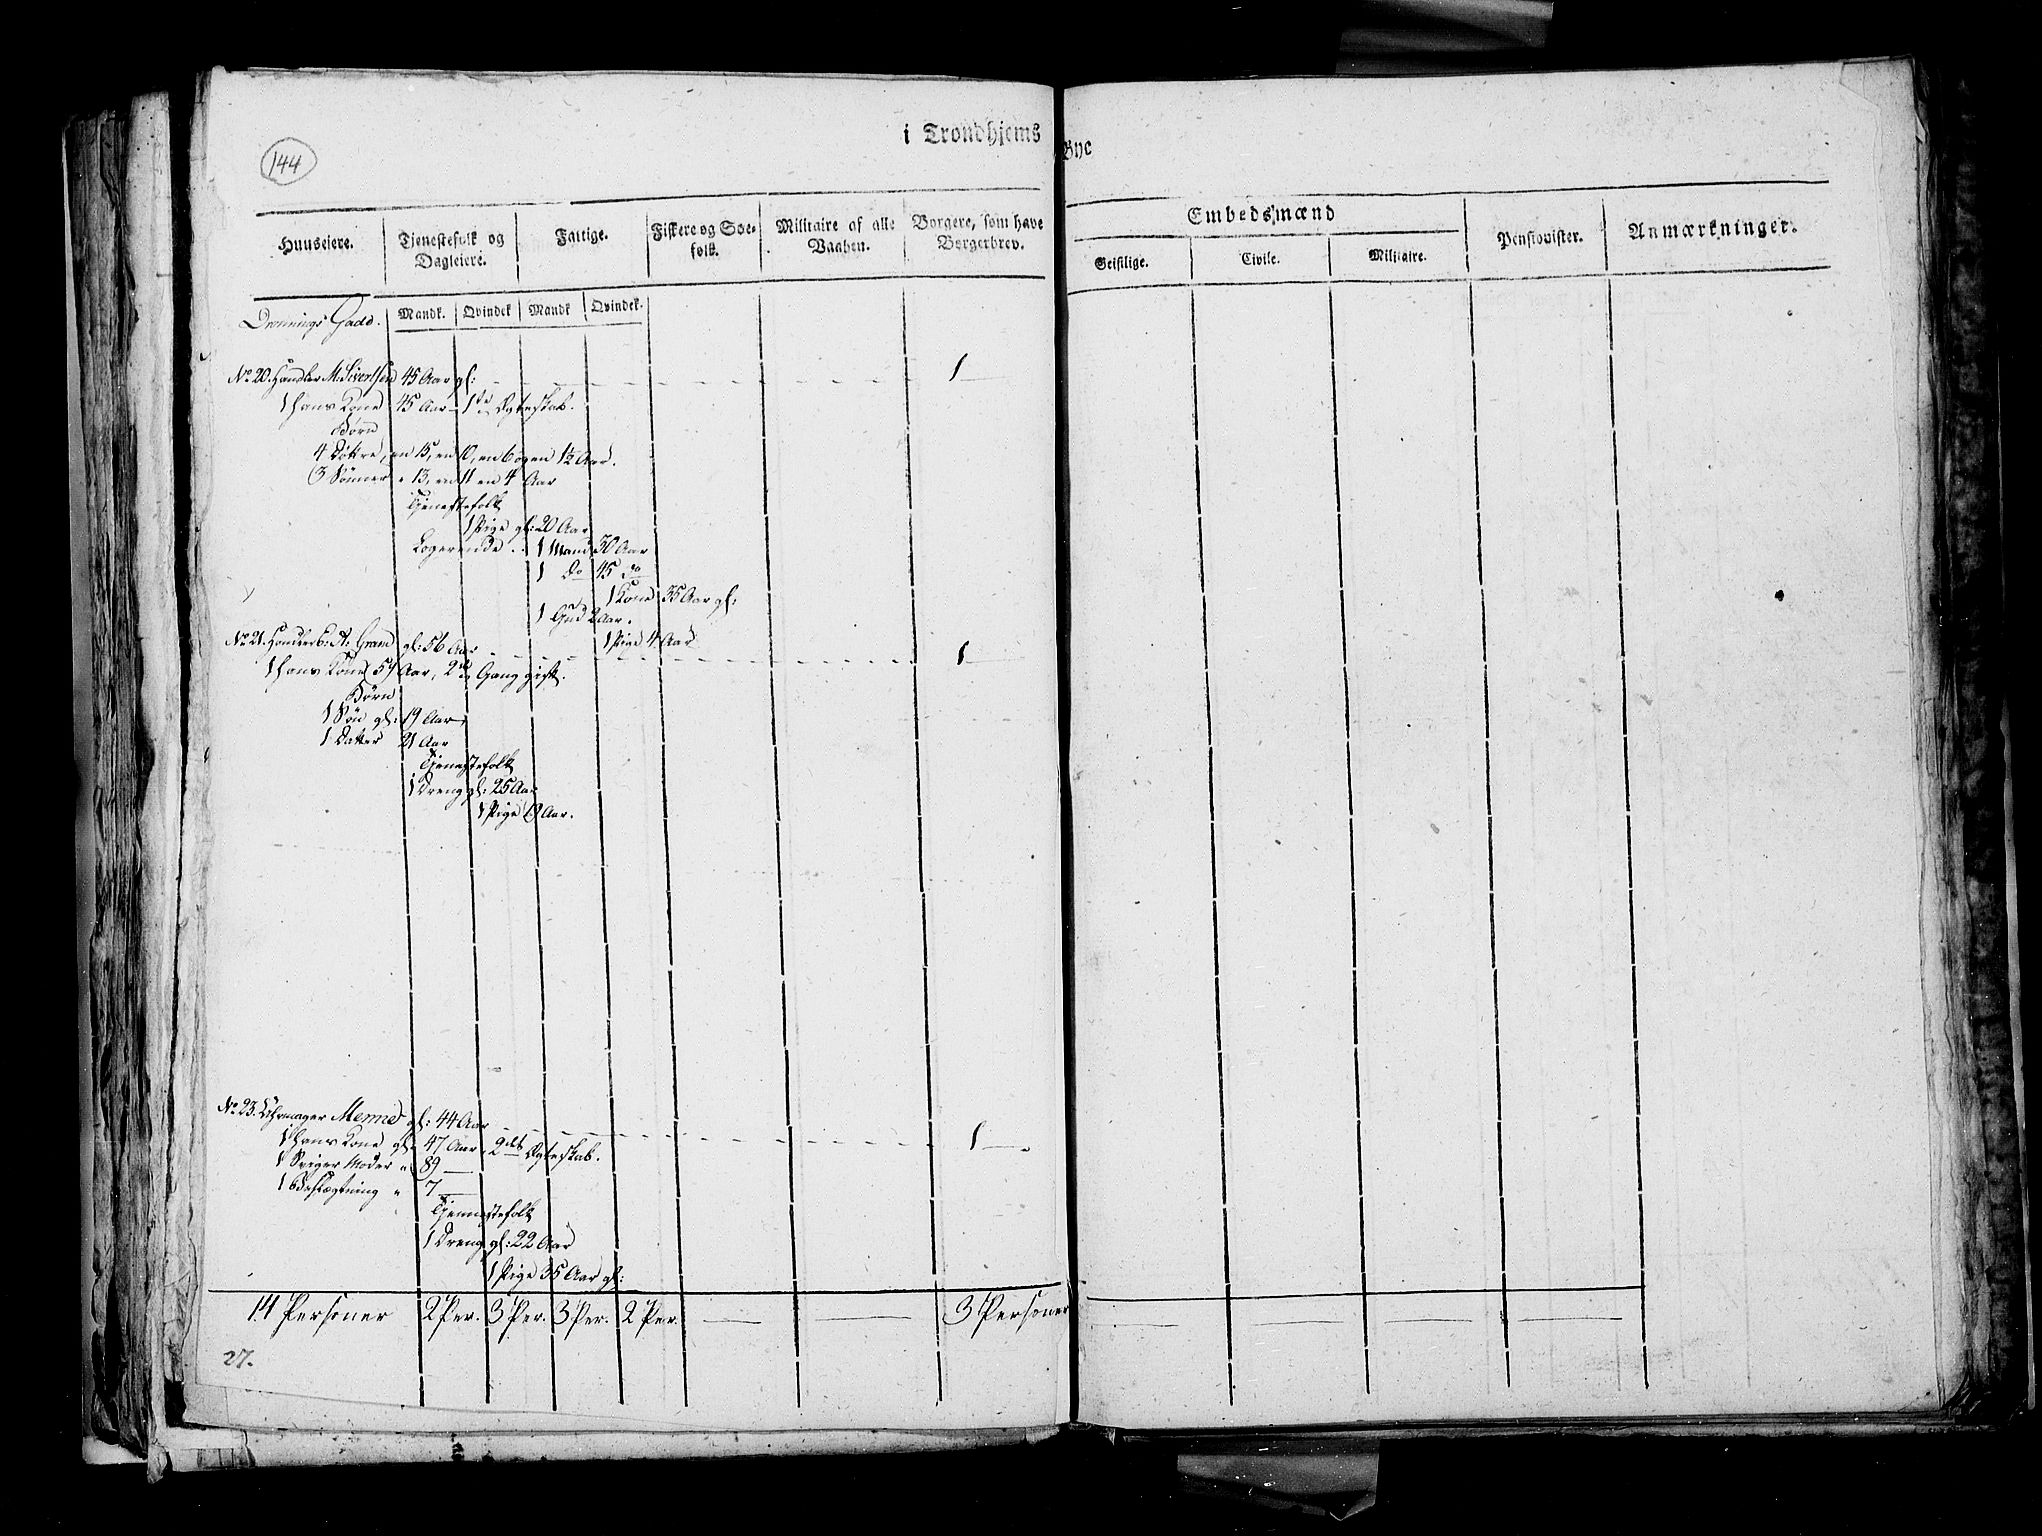 144
i Trondhjems Bye
Huuseiere.
Tjenestefolk og Dagleiere.
Fattige.
Fiskere og Søefolk.
Militaire af alle Vaaben.
Borgere, som have Borgerbrev.
Embedsmænd
Geistlige.
Civile.
Militaire.
Pensionister.
Anmærkninger.
Mandk. Qvindek Mandk Qvindek.
Dronnings Gade.
No 20. Handler M. Sivertsen 45 Aar gl: 1
1 hans Kone 45 Aar 1te Ægteskab.
Børn
4 Døttre, en 15, en 10, en 6 og en 1½ Aar.
3 Sønner " 13, en 11 en 4 Aar
Tjenestefolk
1 Pige gl: 20 Aar
Logerende .. 1 Mand 50 Aar
1 do 45 do
1 Kone 35 Aar gl:
1 Gut 2 Aar.
1 Pige 4 Aar
No 21. A: Gram gl: 56 Aar 1
1 hans Kone 57 Aar, 2den Gang gift.
Børn
1 Søn gl: 19 Aar
1 Datter 21 Aar
Tjenestefolk
1 Dreng gl: 25 Aar
1 Pige 19 Aar.
No 23. Uhrmager Menne gl: 44 Aar 1
1 hans Kone gl: 47 Aar, 2det Ægteskab.
1 Sviger Moder " 89
1 Beslægtning " 7
Tjenestefolk
1 Dreng gl: 22 Aar
1 Pige 35 Aar gl:
14 Personer 2 Per. 3 Per. 3 Per. 2 Per. 3 Personer
27.